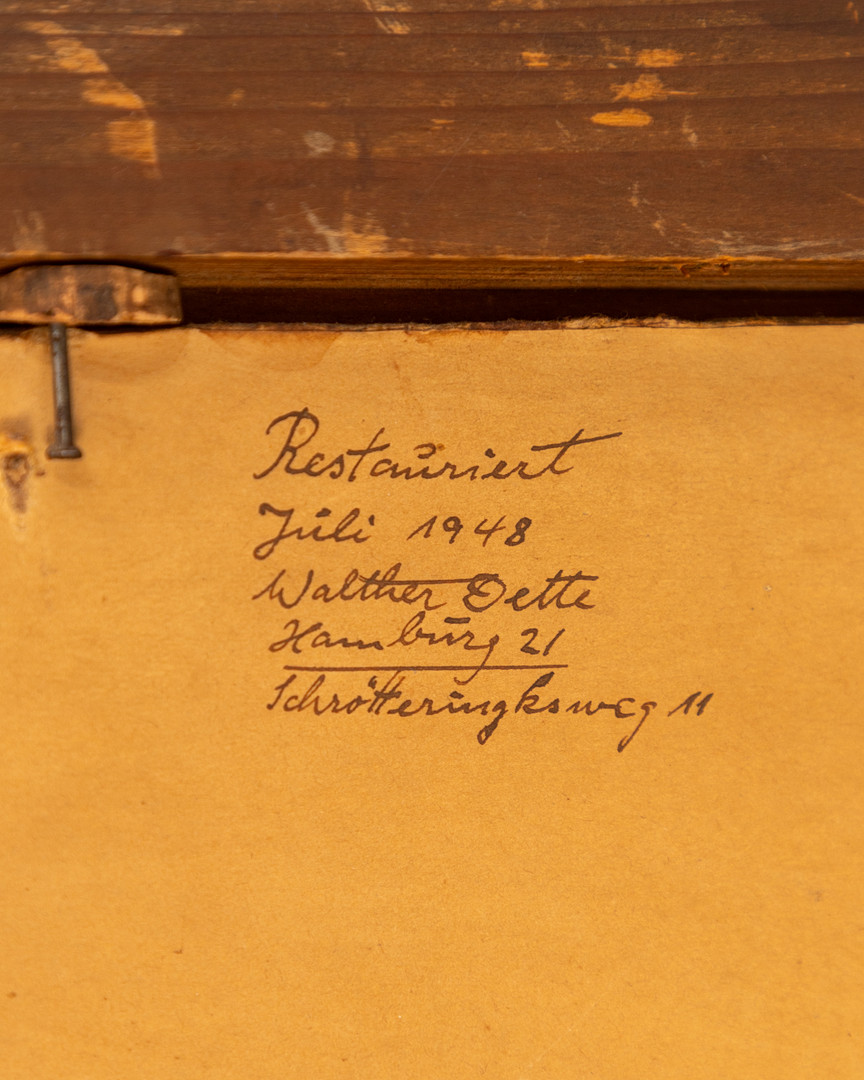 Restauriert
Juli 1948
Walther Dette
Hamburg 21
Schrötteringksweg 11